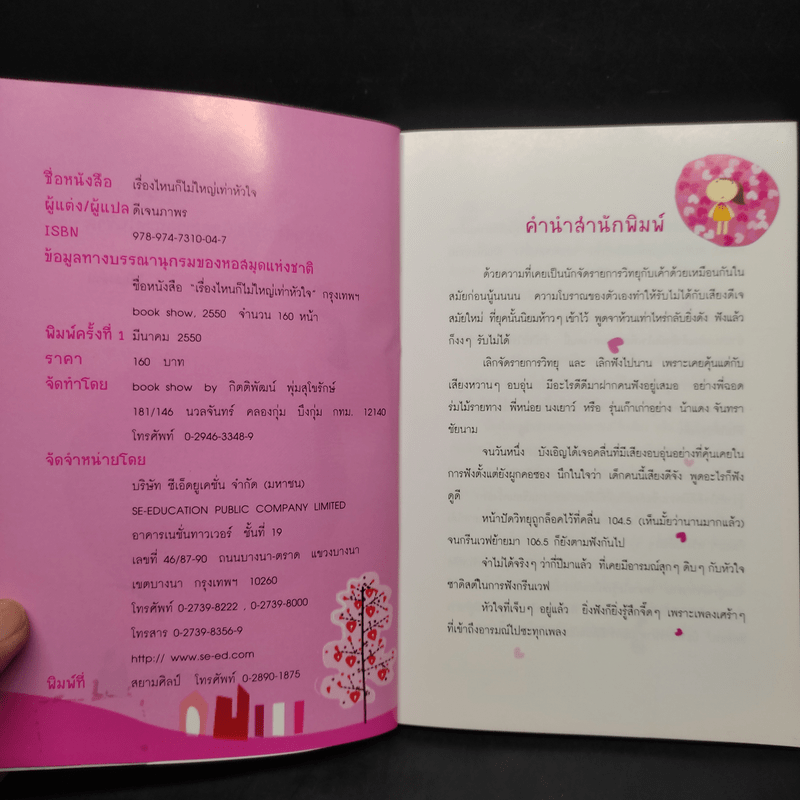 ชื่อหนังสือ เรื่องไหนก็ไม่ใหญ่เท่าหัวใจ
ผู้แต่ง/ผู้แปล ดีเจนภาพร
ISBN 978-974-7310-04-7
ข้อมูลทางบรรณานุกรมของหอสมุดแห่งชาติ
ชื่อหนังสือ "เรื่องไหนก็ไม่ใหญ่เท่าหัวใจ" กรุงเทพฯ
book show. 2550 จำนวน 160 หน้า
พิมพ์ครั้งที่ 1 มีนาคม 2550
ราคา 160 บาท
จัดทำโดย book show by กิตติพัฒน์ พุ่มสุโขรักษ์
181/146 นวลจันทร์ คลองกุ่ม บึงกุ่ม กทม. 12140
โทรศัพท์ 0-2946-3348-9
จัดจำหน่ายโดย
บริษัท ซีเอ็ดยูเคชั่น จำกัด (มหาชน)
SE-EDUCATION PUBLIC COMPANY LIMITED
อาคารเนชั่นทาวเวอร์ ชั้นที่ 19
เลขที่ 46/87-90 ถนนบางนา-ตราด แขวงบางนา
เขตบางนา กรุงเทพฯ 10260
โทรศัพท์ 0-2739-8222 , 0-2739-8000
โทรสาร 0-2739-8356-9
http:// www.se-ed.com
พิมพ์ที่ สยามศิลป์ โทรศัพท์ 0-2890-1875
คำนำสำนักพิมพ์
ด้วยความที่เคยเป็นนักจัดรายการวิทยุกับเค้าด้วยเหมือนกันใน
สมัยก่อนนู้นนนน ความโบราณของตัวเองทำให้รับไม่ได้กับเสียงดีเจ
สมัยใหม่ ที่ยุคนั้นนิยมห้าวๆ เข้าไว้ พูดจาห้วนเท่าไหร่กลับยิ่งดัง ฟังแล้ว
ก็งงๆ รับไม่ได้
เลิกจัดรายการวิทยุ และ เลิกฟังไปนาน เพราะเคยคุ้นแต่กับ
เสียงหวานๆ อบอุ่น มีอะไรดีดีมาฝากคนฟังอยู่เสมอ อย่างพี่ฉอด
ร่มไม้รายทาง พี่หน่อย นงเยาว์ หรือ รุ่นเก๊าเก่าอย่าง น้าแดง จันทรา
ชัยนาม
จนวันหนึ่ง บังเอิญได้เจอคลื่นที่มีเสียงอบอุ่นอย่างที่คุ้นเคยใน
การฟังตั้งแต่ยังผูกคอซอง นึกในใจว่า เด็กคนนี้เสียงดีจัง พูดอะไรก็ฟัง
ดูดี
หน้าปัดวิทยุถูกล็อคไว้ที่คลื่น 104.5 (เห็นมั้ยว่านานมากแล้ว)
จนกรีนเวฟย้ายมา 106.5 ก็ยังตามฟังกันไป
จำไม่ได้จริงๆ ว่ากี่ปีมาแล้ว ที่เคยมีอารมณ์สุกๆ ดิบๆ กับหัวใจ
ซาดิสต์ในการฟังกรีนเวฟ
หัวใจที่เจ็บๆ อยู่แล้ว ยิ่งฟังก็ยิ่งรู้สึกจี๊ดๆ เพราะเพลงเศร้าๆ
ที่เข้าถึงอารมณ์ไปซะทุกเพลง